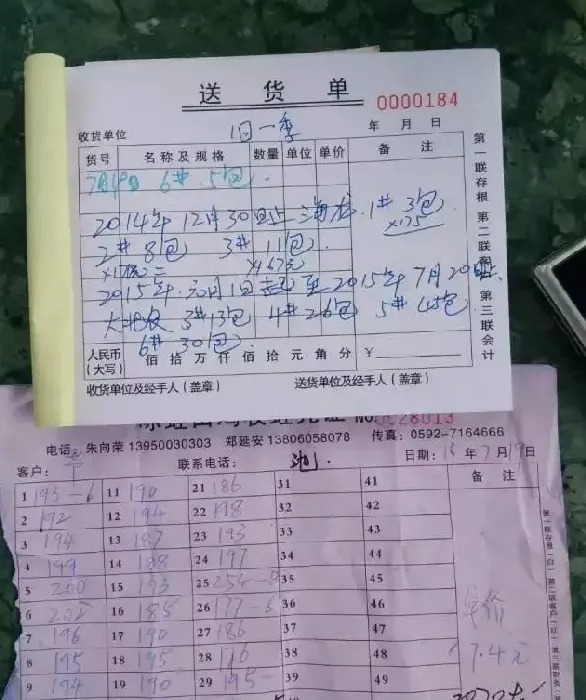 送 货 单
0000184
收货单位
年 月 日
货号 名称及规格 数量 单位 单价 备 注
7月19日 6# 5包.
2014年12月30日止 海龙 1# 3包
×175
2# 8包 3# 11包
2015年 元月1日起至2015年7月20日止
3# 13包 4# 26包 5# 45包
6# 30包
人民币(大写) 佰 拾 万 仟 佰 拾 元 角 分 ¥
收货单位及经手人(盖章) 送货单位及经手人(盖章)
第一联存根 第二联 第三联会计
电话: 朱向荣 13950030303 郑延安 13806058078 传真: 0592-7164666
客户: 联系电话: 日期: 15年7月19日
备 注
1 195-6 11 190 21 186 31 41
2 192 12 194 22 198 32 42
3 194 13 187 23 193 33 43
4 199 14 188 24 197 34 44
5 200 15 193 25 254 35 45
6 202 16 185 26 177-6 36 46
7 196 17 190 27 186 37 47
8 195 18 195 28 176 38 48
9 194 19 190 29 195 39 49
单价
7.4元